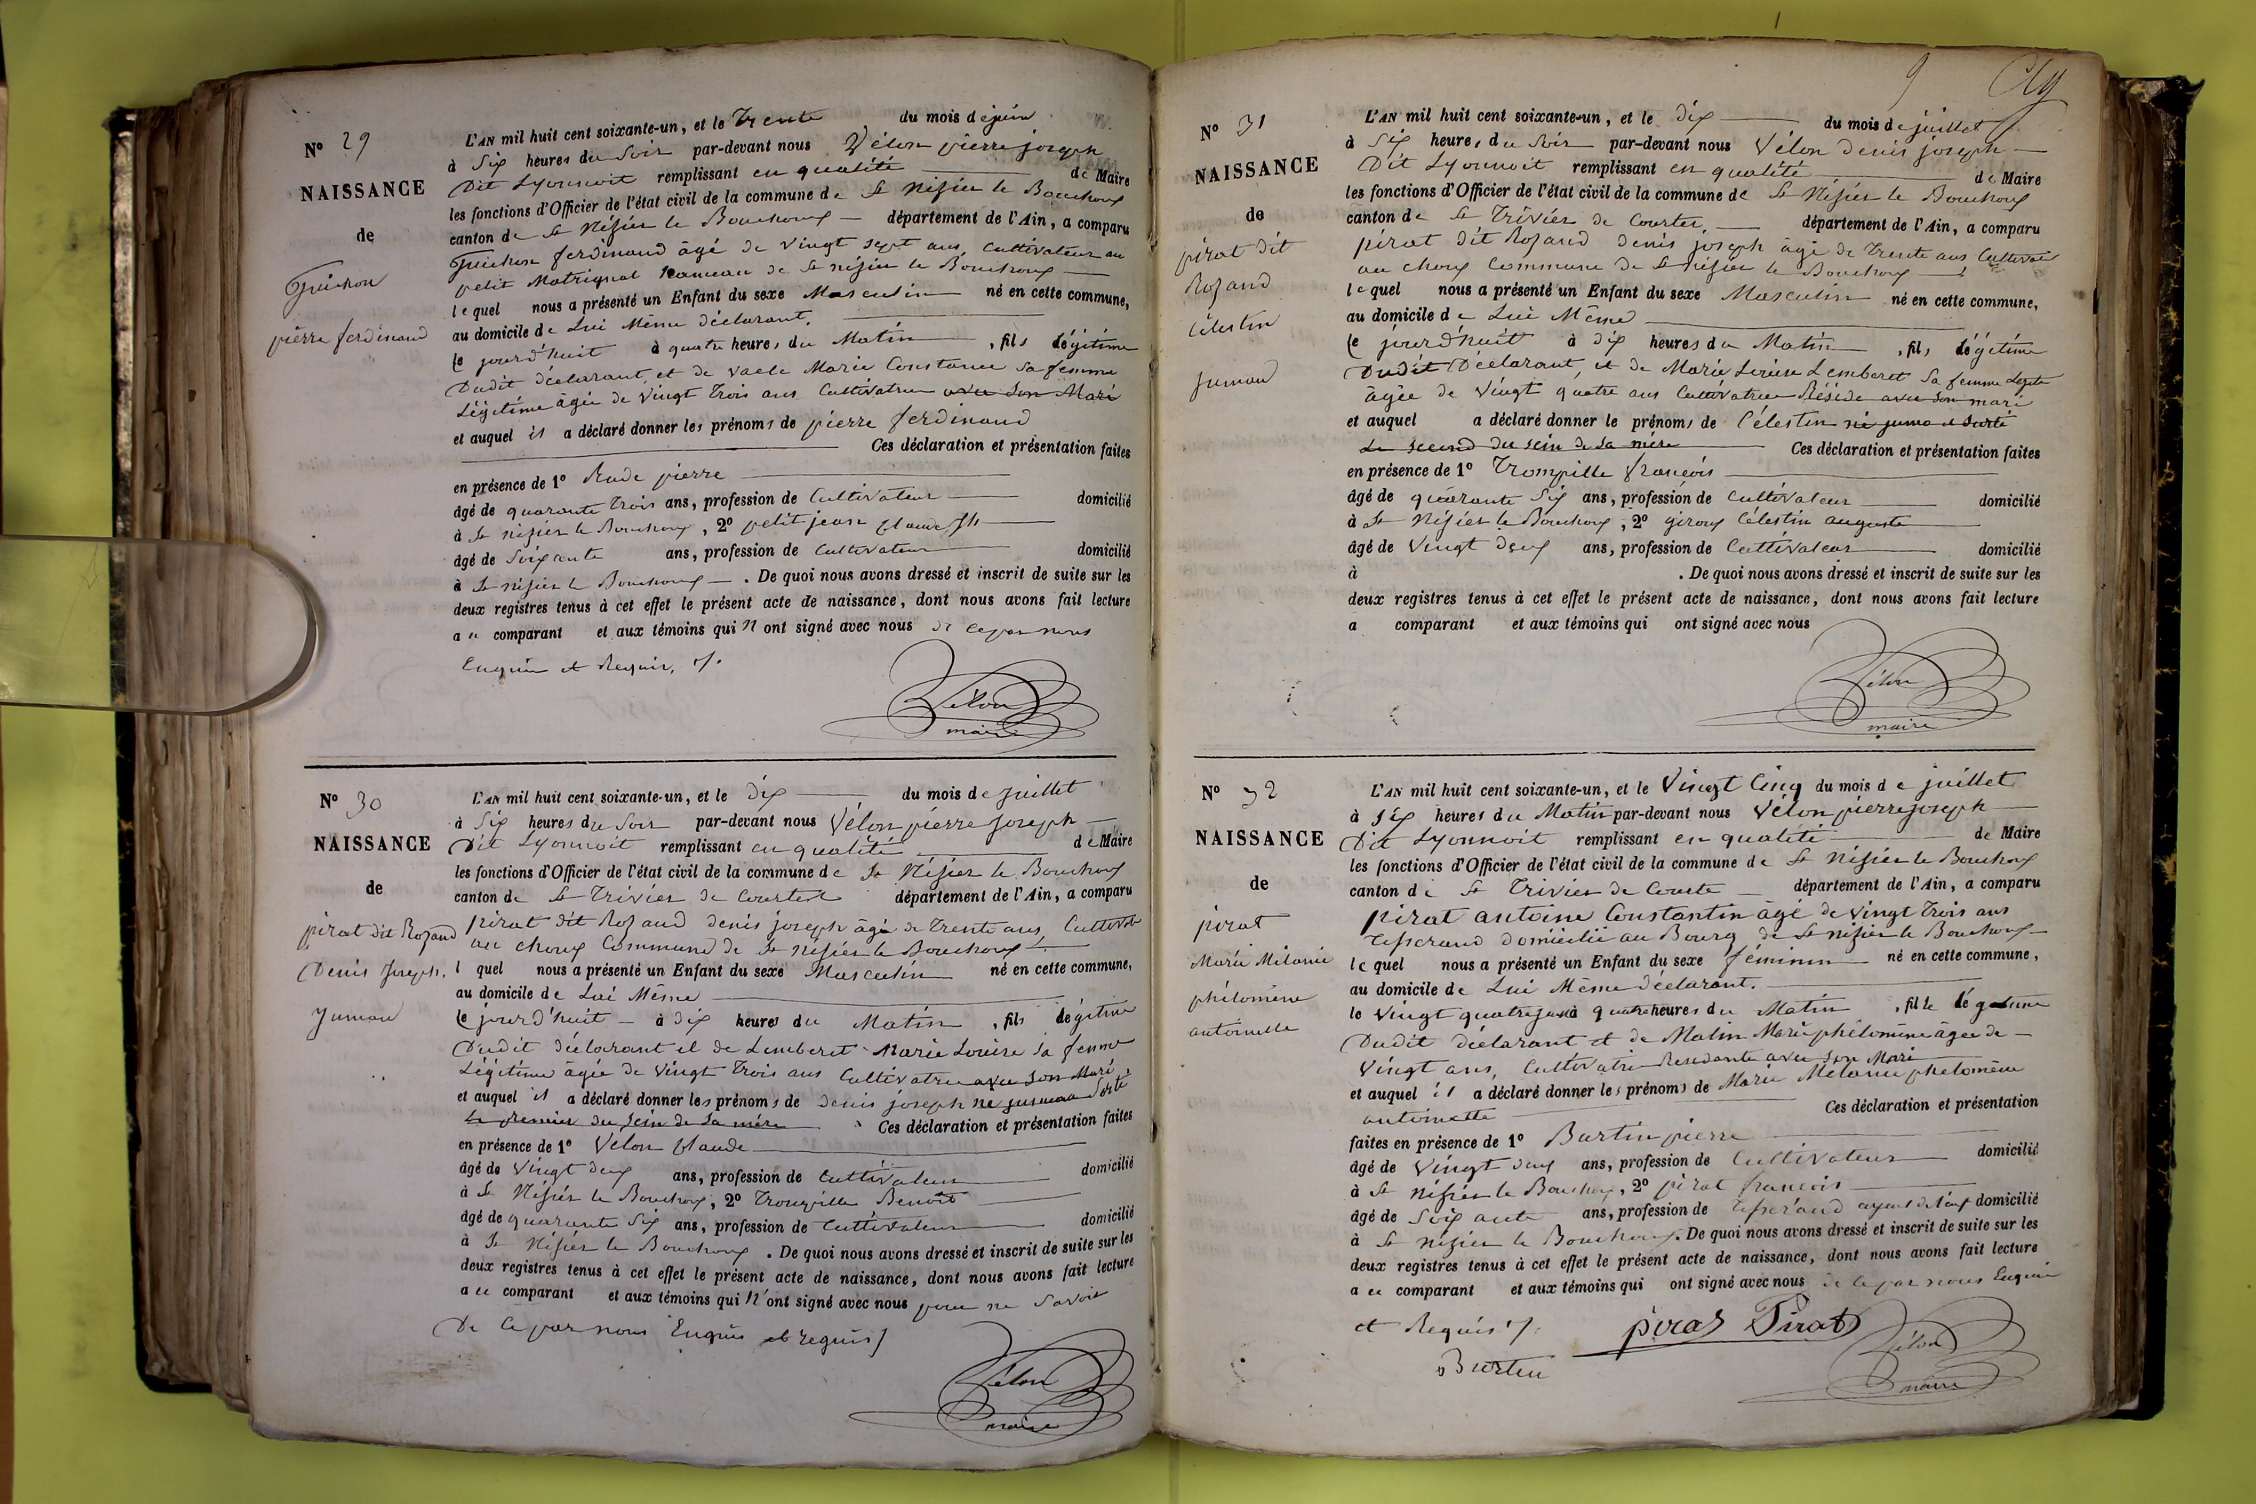 N° 29
NAISSANCE
de
Guichon
pierre ferdinand
L'AN mil huit cent soixante-un, et le Trente du mois de juin
à Six heures du Soir par-devant nous Vélon pierre joseph
Dit Lyonnoit remplissant en qualité de Maire
les fonctions d'Officier de l'état civil de la commune de St Nizier le Bouchoux
canton de St Nizier le Bouchoux département de l'Ain, a comparu
Guichon ferdinand âgé de vingt sept ans, Cultivateur au
petit Matrignat hameau de St nizier le Bouchoux
lequel nous a présenté un Enfant du sexe Masculin né en cette commune,
au domicile de Lui Même déclarant.
le jourd'huit à quatre heures du Matin, fils légitime
Dudit déclarant, et de vacle Marie Constance Sa femme
Légitime âgée de vingt Trois ans Cultivatrice avec Son Mari
et auquel il a déclaré donner les prénoms de pierre ferdinand
Ces déclaration et présentation faites
en présence de 1° Rude pierre
âgé de quarante Trois ans, profession de Cultivateur domicilié
à St nizier le Bouchoux, 2° petit jean Claude
âgé de Soixante ans, profession de Cultivateur domicilié
à St nizier le Bouchoux. De quoi nous avons dressé et inscrit de suite sur les
deux registres tenus à cet effet le présent acte de naissance, dont nous avons fait lecture
au comparant et aux témoins qui n ont signé avec nous de ce par nous
Enquis et Requis,
Vélon
maire
N° 30
NAISSANCE
de
pirat dit Rozand
Denis Joseph,
Jumau
L'AN mil huit cent soixante-un, et le dix du mois de juillet
à Six heures du Soir par-devant nous Vélon pierre Joseph
Dit Lyonnoit remplissant en qualité de Maire
les fonctions d'Officier de l'état civil de la commune de St Nizier le Bouchoux
canton de St Trivier de Courtes département de l'Ain, a comparu
pirat dit Rozand denis joseph âgé de Trente ans, Cultivat
au choux Commune de St Nizier le Bouchoux
l quel nous a présenté un Enfant du sexe Masculin né en cette commune,
au domicile de Lui Même
le jourd'huit à dix heures du Matin, fils légitime
Dudit déclarant et de Lemberet Marie Louise Sa femme
Légitime âgée de vingt Trois ans Cultivatrice avec Son Mari
et auquel il a déclaré donner les prénoms de denis joseph né jumeau Sorti
Le premier du Sein de Sa mère Ces déclaration et présentation faites
en présence de 1° Velon Claude
âgé de vingt deux ans, profession de Cultivateur domicilié
à St Nizier le Bouchoux, 2° Trompille Benoit
âgé de quarante Six ans, profession de Cultivateur domicilié
à St Nizier le Bouchoux. De quoi nous avons dressé et inscrit de suite sur les
deux registres tenus à cet effet le présent acte de naissance, dont nous avons fait lecture
au comparant et aux témoins qui n'ont signé avec nous pour ne Savoir
De Ce par nous Enquis et requis
Vélon
maire
9
N° 31
NAISSANCE
de
pirat dit
Rozand
Célestin
Jumau
L'AN mil huit cent soixante-un, et le dix du mois de juillet
à Six heures du Soir par-devant nous Vélon Denis joseph
Dit Lyonnoit remplissant en qualité de Maire
les fonctions d'Officier de l'état civil de la commune de St Nizier le Bouchoux
canton de St Trivier de Courtes département de l'Ain, a comparu
pirat dit Rozand denis joseph âgé de Trente ans Cultivat
au choux Commune de St Nizier le Bouchoux
lequel nous a présenté un Enfant du sexe Masculin né en cette commune,
au domicile de Lui Même
le jourd'huit à dix heures du Matin, fils légitime
Dudit Déclarant, et de Marie Louise Lemberet Sa femme Légite
âgée de vingt quatre ans Cultivatrice Réside avec Son mari
et auquel a déclaré donner le prénoms de Célestin né jumo et Sorti
Le Second du sein de Sa mère Ces déclaration et présentation faites
en présence de 1° Trompille françois
âgé de quarante Six ans, profession de Cultivateur domicilié
à St Nizier le Bouchoux, 2° giroux Célestin auguste
âgé de vingt deux ans, profession de Cultivateur domicilié
à . De quoi nous avons dressé et inscrit de suite sur les
deux registres tenus à cet effet le présent acte de naissance, dont nous avons fait lecture
a comparant et aux témoins qui ont signé avec nous
Vélon
maire
N° 32
NAISSANCE
de
pirat
Marie Mélanie
phélomène
antoinette
L'AN mil huit cent soixante-un, et le Vingt Cinq du mois de juillet
à Six heures du Matin par-devant nous Vélon pierre joseph
Dit Lyonnoit remplissant en qualité de Maire
les fonctions d'Officier de l'état civil de la commune de St Nizier le Bouchoux
canton de St Trivier de Courte département de l'Ain, a comparu
pirat antoine Constantin âgé de vingt Trois ans
Tisserand domicilié au Bourg de St nizier le Bouchoux
lequel nous a présenté un Enfant du sexe féminin né en cette commune,
au domicile de Lui Même Déclarant.
le vingt quatre à quatre heures du Matin, fille légitime
Dudit déclarant et de Matin Marie phélomène âgée de
vingt ans, Cultivatrice Residante avec Son Mari
et auquel il a déclaré donner les prénoms de Marie Mélanie phélomène
antoinette Ces déclaration et présentation
faites en présence de 1° Burtin pierre
âgé de vingt deux ans, profession de Cultivateur domicilié
à St Nizier le Bouchoux, 2° pirat francois
âgé de Soixante ans, profession de Tisserand domicilié
à St nizier le Bouchoux. De quoi nous avons dressé et inscrit de suite sur les
deux registres tenus à cet effet le présent acte de naissance, dont nous avons fait lecture
au comparant et aux témoins qui ont signé avec nous de ce par nous Enquis
et Requis
piras Pirat
Burtin
Vélon
maire